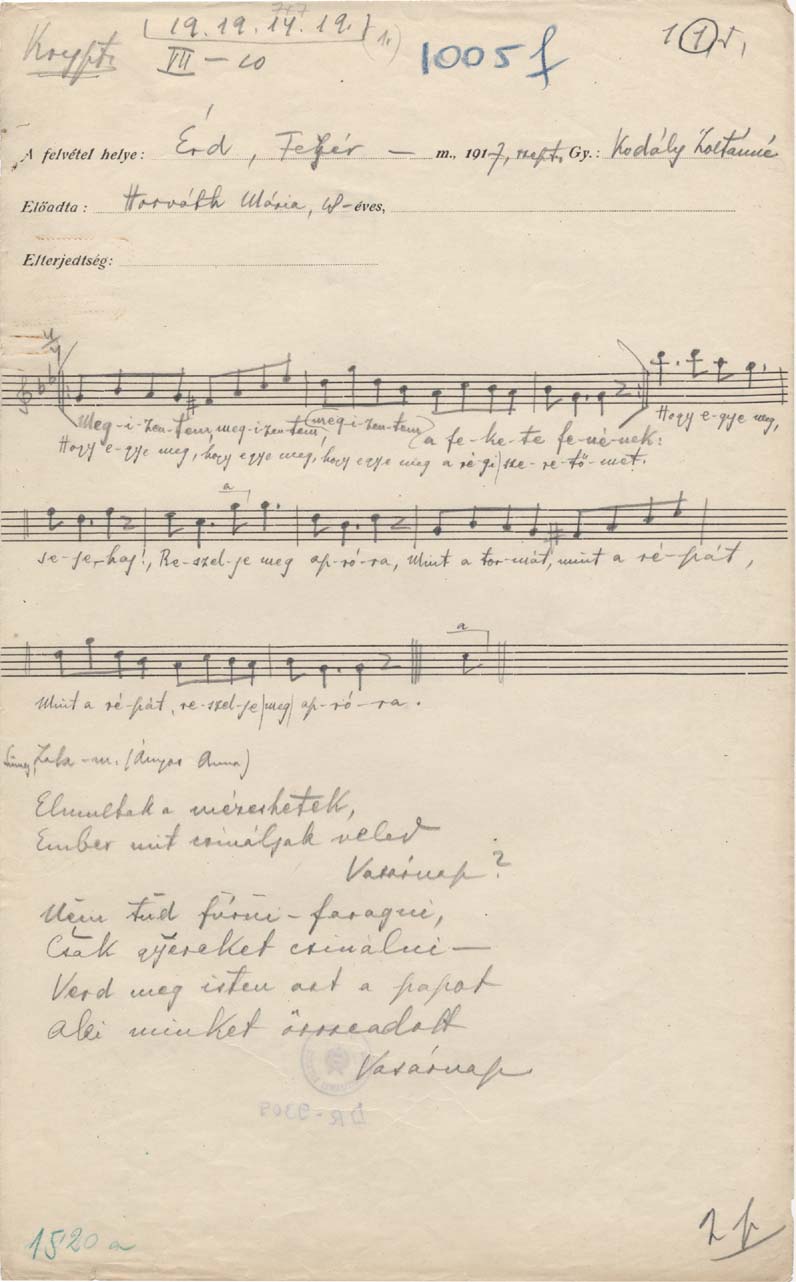 19. 19. 14. 19.
VII – 10
1005 f
A felvétel helye: Érd, Fejér – m., 1917, szept. Gy.: Kodály Zoltánné
Előadta: Horváth Mária, –éves,
Elterjedtség:
4/4
Meg-i-zen-tem, meg-i-zen-tem, (meg-i-zen-tem) a fe-ke-te fe-né-nek: Hogy e-gye meg,
Hogy e-gye meg, hogy egye meg, hogy egye meg a ré-gi sze-re-tő-met.
a
se-je-haj!, Re-szel-je meg ap-ró-ra, Mint a tor-mát, mint a ré-pát,
a
Mint a ré-pát, re-szel-je meg ap-ró-ra.
Zala-m. (Ányos Anna)
Elmultak a mézeshetek,
Ember mit csináljak veled
Vasárnap?
Nem tud fúrni-faragni,
Csak gyereket csinálni –
Verd meg isten azt a papot
Aki minket összeadott
Vasárnap
DR-9309
1520 a